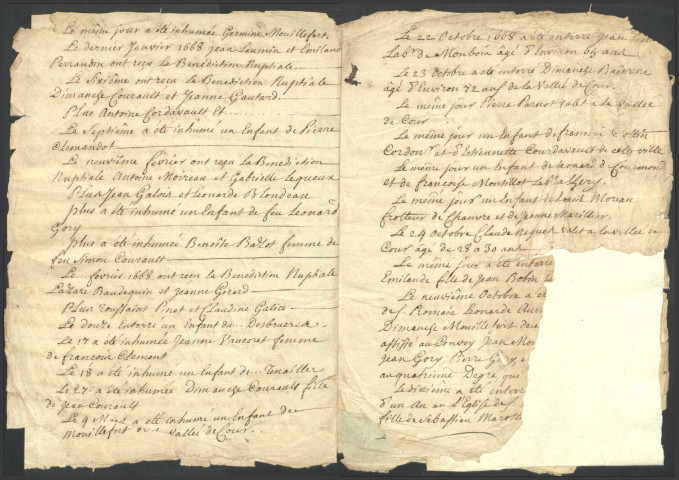 Le même jour a été inhumée Germine Mouillefort.
Le dernier Janvier 1668 Jean Launin et Emiland
Perraudin ont reçu la Bénédiction Nuptiale.
Le Sixième ont reçu la Benediction Nuptiale
Dimanche Courault et Jeanne Gautard.
Plus Antoine Cordavault Et
Le Septième a été inhumé un Enfant de Pierre
Clemandot
Le neuvième février ont reçu la Benediction
Nuptiale Antoine Moireau et Gabrielle Lequeux
Plus Jean Galois et Leonarde Blondeau
Plus a été inhumé un Enfant de feu Leonard
Gory
plus a été inhumée Benoîte Bazot femme de
feu Simon Courault
Le février 1668 ont reçu la Benediction Nuptiale
Lazare Baudequin et Jeanne Gerard
Plus Toussaint Pinet et Claudine Galice
Le douze enterré un Enfant du Desbruerck
Le 17 a été inhumée Jeanne Vaucret femme
de françois Clement
Le 18 a été inhumé un Enfant de Tonailler
Le 27 a été inhumée Dimanche Courault fille
de Jean Courault
Le 9 Mars a été inhumé un Enfant de
Mouillefort de Vallée de Cour
Le 22 Octobre 1668 a été enterré Jean
Labr de Monboix âgé d'Environ 65 ans
Le 23 Octobre a été enterré Dimanche
âgé d'Environ 22 ans de la Vallée de Cour.
Le même jour Pierre Parnot valet a la Vallée
de Cour
Le même jour un Enfant de francois
Cordonr et d'Etiennette Courdavault de cette ville
Le même jour un Enfant de Leonard de
et de françoise Montillot
Le même jour un Enfant de Louis Moreau
frotteur de Chanvre et de Jeanne Marillier
Le 24 octobre Claude Niquet Valet a la Vallée de
Cour âgé de 28 a 30 ans
Le même jour a été enterré
Emilande fille de Jean Bobin
Le neuvième Octobre a é
de St Romain Leonarde
Dimanche Mouillefort
assisté au Convoy Jean Mo
Jean Gory Pierre Gory
au quatrième Degré que
Le dixième a été enterré
d'un an en L'Eglise de
fille de Sebastien